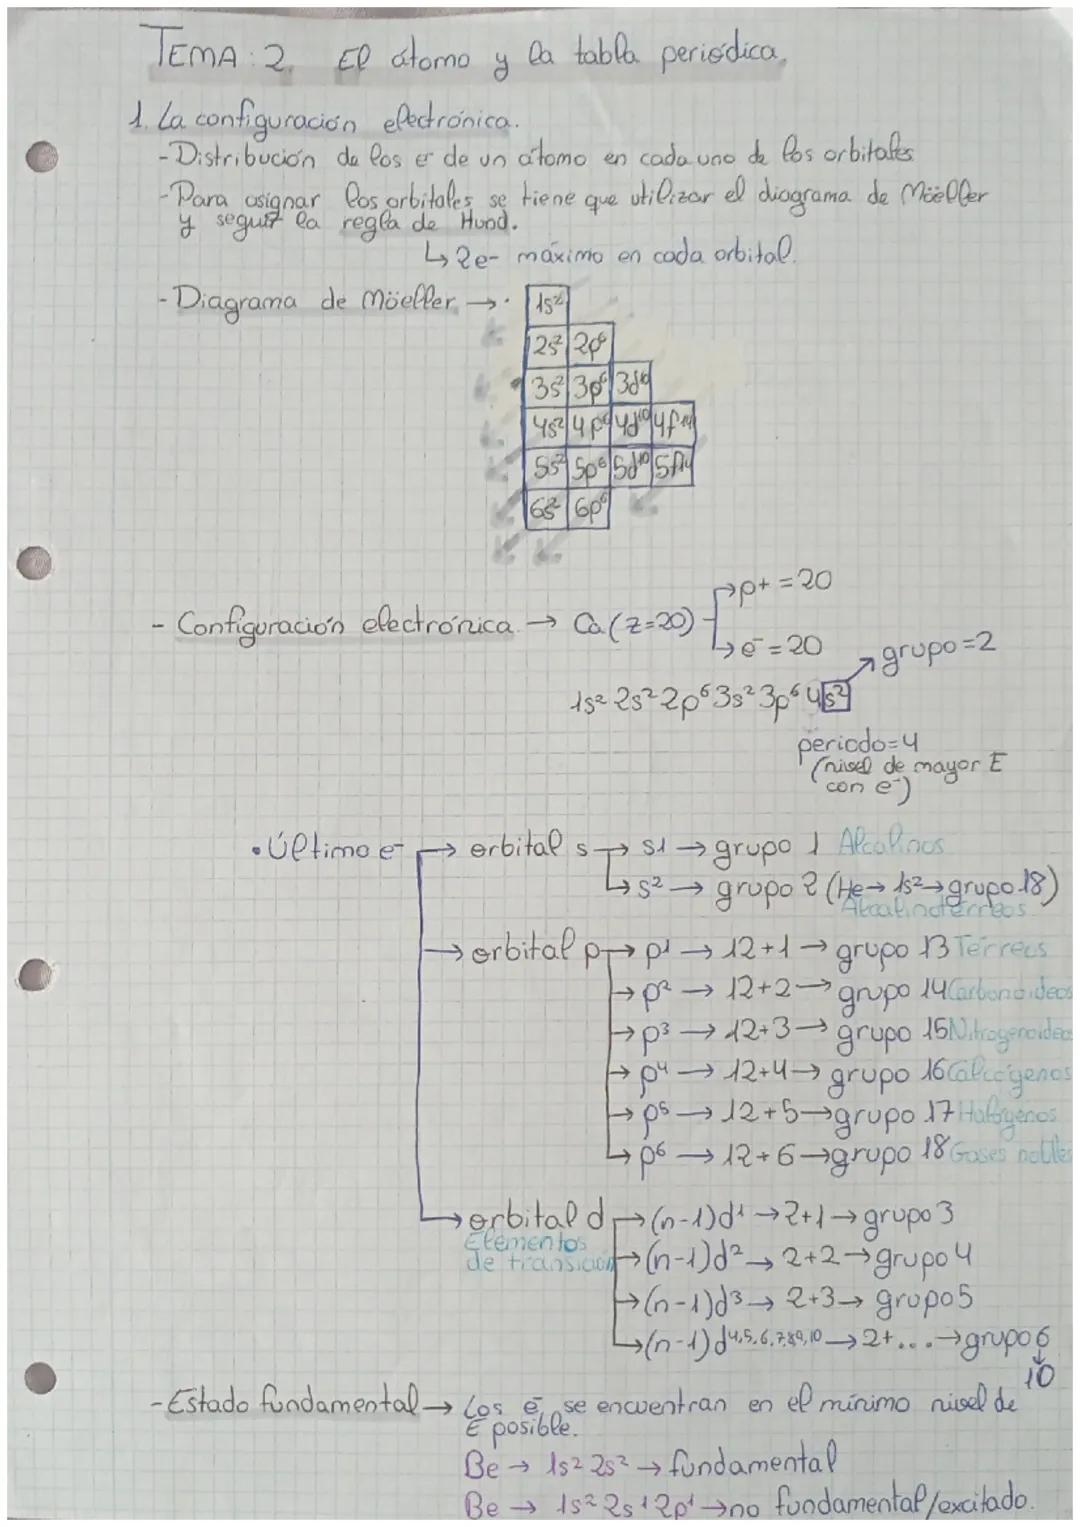 TEMA: 2. El átomo y la tabla periódica.
1. La configuración electrónica.
- Distribución de los e- de un átomo en cada uno de los orbitales
- Para asignar los orbitales se tiene que utilizar el diagrama de Möeller
y seguir la regla de Hund.
↳ 2e- máximo en cada orbital.
- Diagrama de Möeller → · 1s²
2s² 2p⁶
3s² 3p⁶ 3d¹⁰
4s² 4p⁶ 4d¹⁰ 4f¹⁴
5s² 5p⁶ 5d¹⁰ 5f¹⁴
6s² 6p⁶
→ p+ = 20
- Configuración electrónica. → Ca (z=20)
↳ e⁻ = 20
grupo = 2
1s² 2s² 2p⁶ 3s² 3p⁶ 4s²
periodo = 4
(nivel de mayor E
con e⁻)
• Último e- → orbital s → s1 → grupo 1 Alcalinos
↳ s² → grupo 2 (He → 1s² → grupo 18)
Alcalinotérreos
→ orbital p → p¹ → 12+1 → grupo 13 Térreos
→ p² → 12+2 → grupo 14 Carbonoideos
→ p³ → 12+3 → grupo 15 Nitrogenoideos
→ p⁴ → 12+4 → grupo 16 Calcógenos
→ p⁵ → 12+5 → grupo 17 Halógenos
↳ p⁶ → 12+6 → grupo 18 Gases nobles
→ orbital d → (n-1)d¹ → 2+1 → grupo 3
Elementos
de transición → (n-1)d² → 2+2 → grupo 4
→ (n-1)d³ → 2+3 → grupo 5
↳ (n-1)d⁴,⁵,⁶,⁷,⁸,⁹,¹⁰ → 2+... → grupo 6
↓
10
- Estado fundamental → Los e⁻ se encuentran en el mínimo nivel de
E posible.
Be → 1s² 2s² → fundamental
Be → 1s² 2s¹ 2p¹ → no fundamental/excitado.